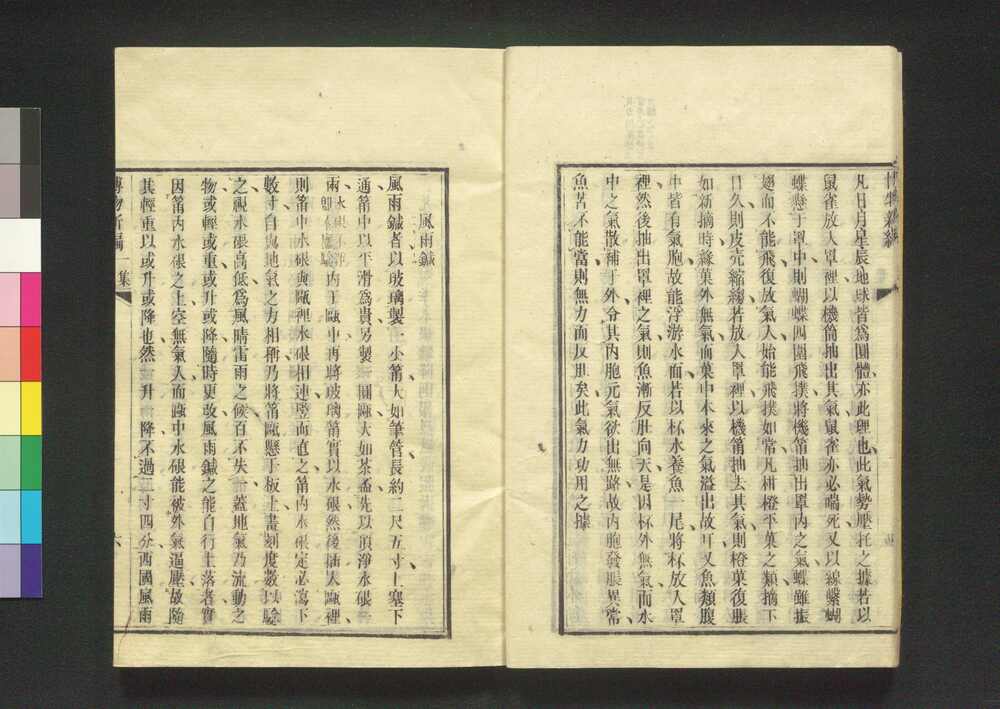 凡日月星辰地球皆爲圓體亦此理也此氣勢壓托之據若以
鼠雀放入罩裡以機筩抽出其氣鼠雀亦必喘死又以線繫蝴
蝶懸于罩中則蝴蝶四圍飛撲將機筩抽出罩內之氣蝶雖振
翅而不能飛復放氣入始能飛撲如常凡柑橙平菓之類摘下
日久則皮壳縮縐若放入罩裡以機筩抽去其氣則橙菓復脹
如新摘時緣菓外無氣而菓中本來之氣溢出故耳又魚類腹
中皆有氣胞故能浮游水面若以杯水養魚一尾將杯放入罩
裡然後抽出罩裡之氣則魚漸反肚向天是因杯外無氣而水
中之氣散補于外令其內胞元氣欲出無路故內胞發脹異常
魚苦不能當則無力而反肚矣此氣力功用之據
風雨鍼
風雨鍼者以玻璃製一小筩大如筆管長約二尺五寸上塞下
通筩中以平滑爲貴另製一圓甌大如茶盃先以頂淨水銀
內于甌中再將玻璃筩實以水銀然後揷入甌裡
則筩中水銀與甌裡水銀相連豎而直之筩內水銀定必瀉下
數寸自與地氣之力相稱乃將筩甌懸于板上畫刻度數以驗
之視水銀高低爲風晴雷雨之候百不失一蓋地氣乃流動之
物或輕或重或升或降隨時更改風雨鍼之能自行上落者實
因筩內水銀之上空無氣入而甌中水銀能被外氣逼壓故隨
其輕重以或升或降也然一升一降不過三寸四分西國風雨
博物新編一集
六